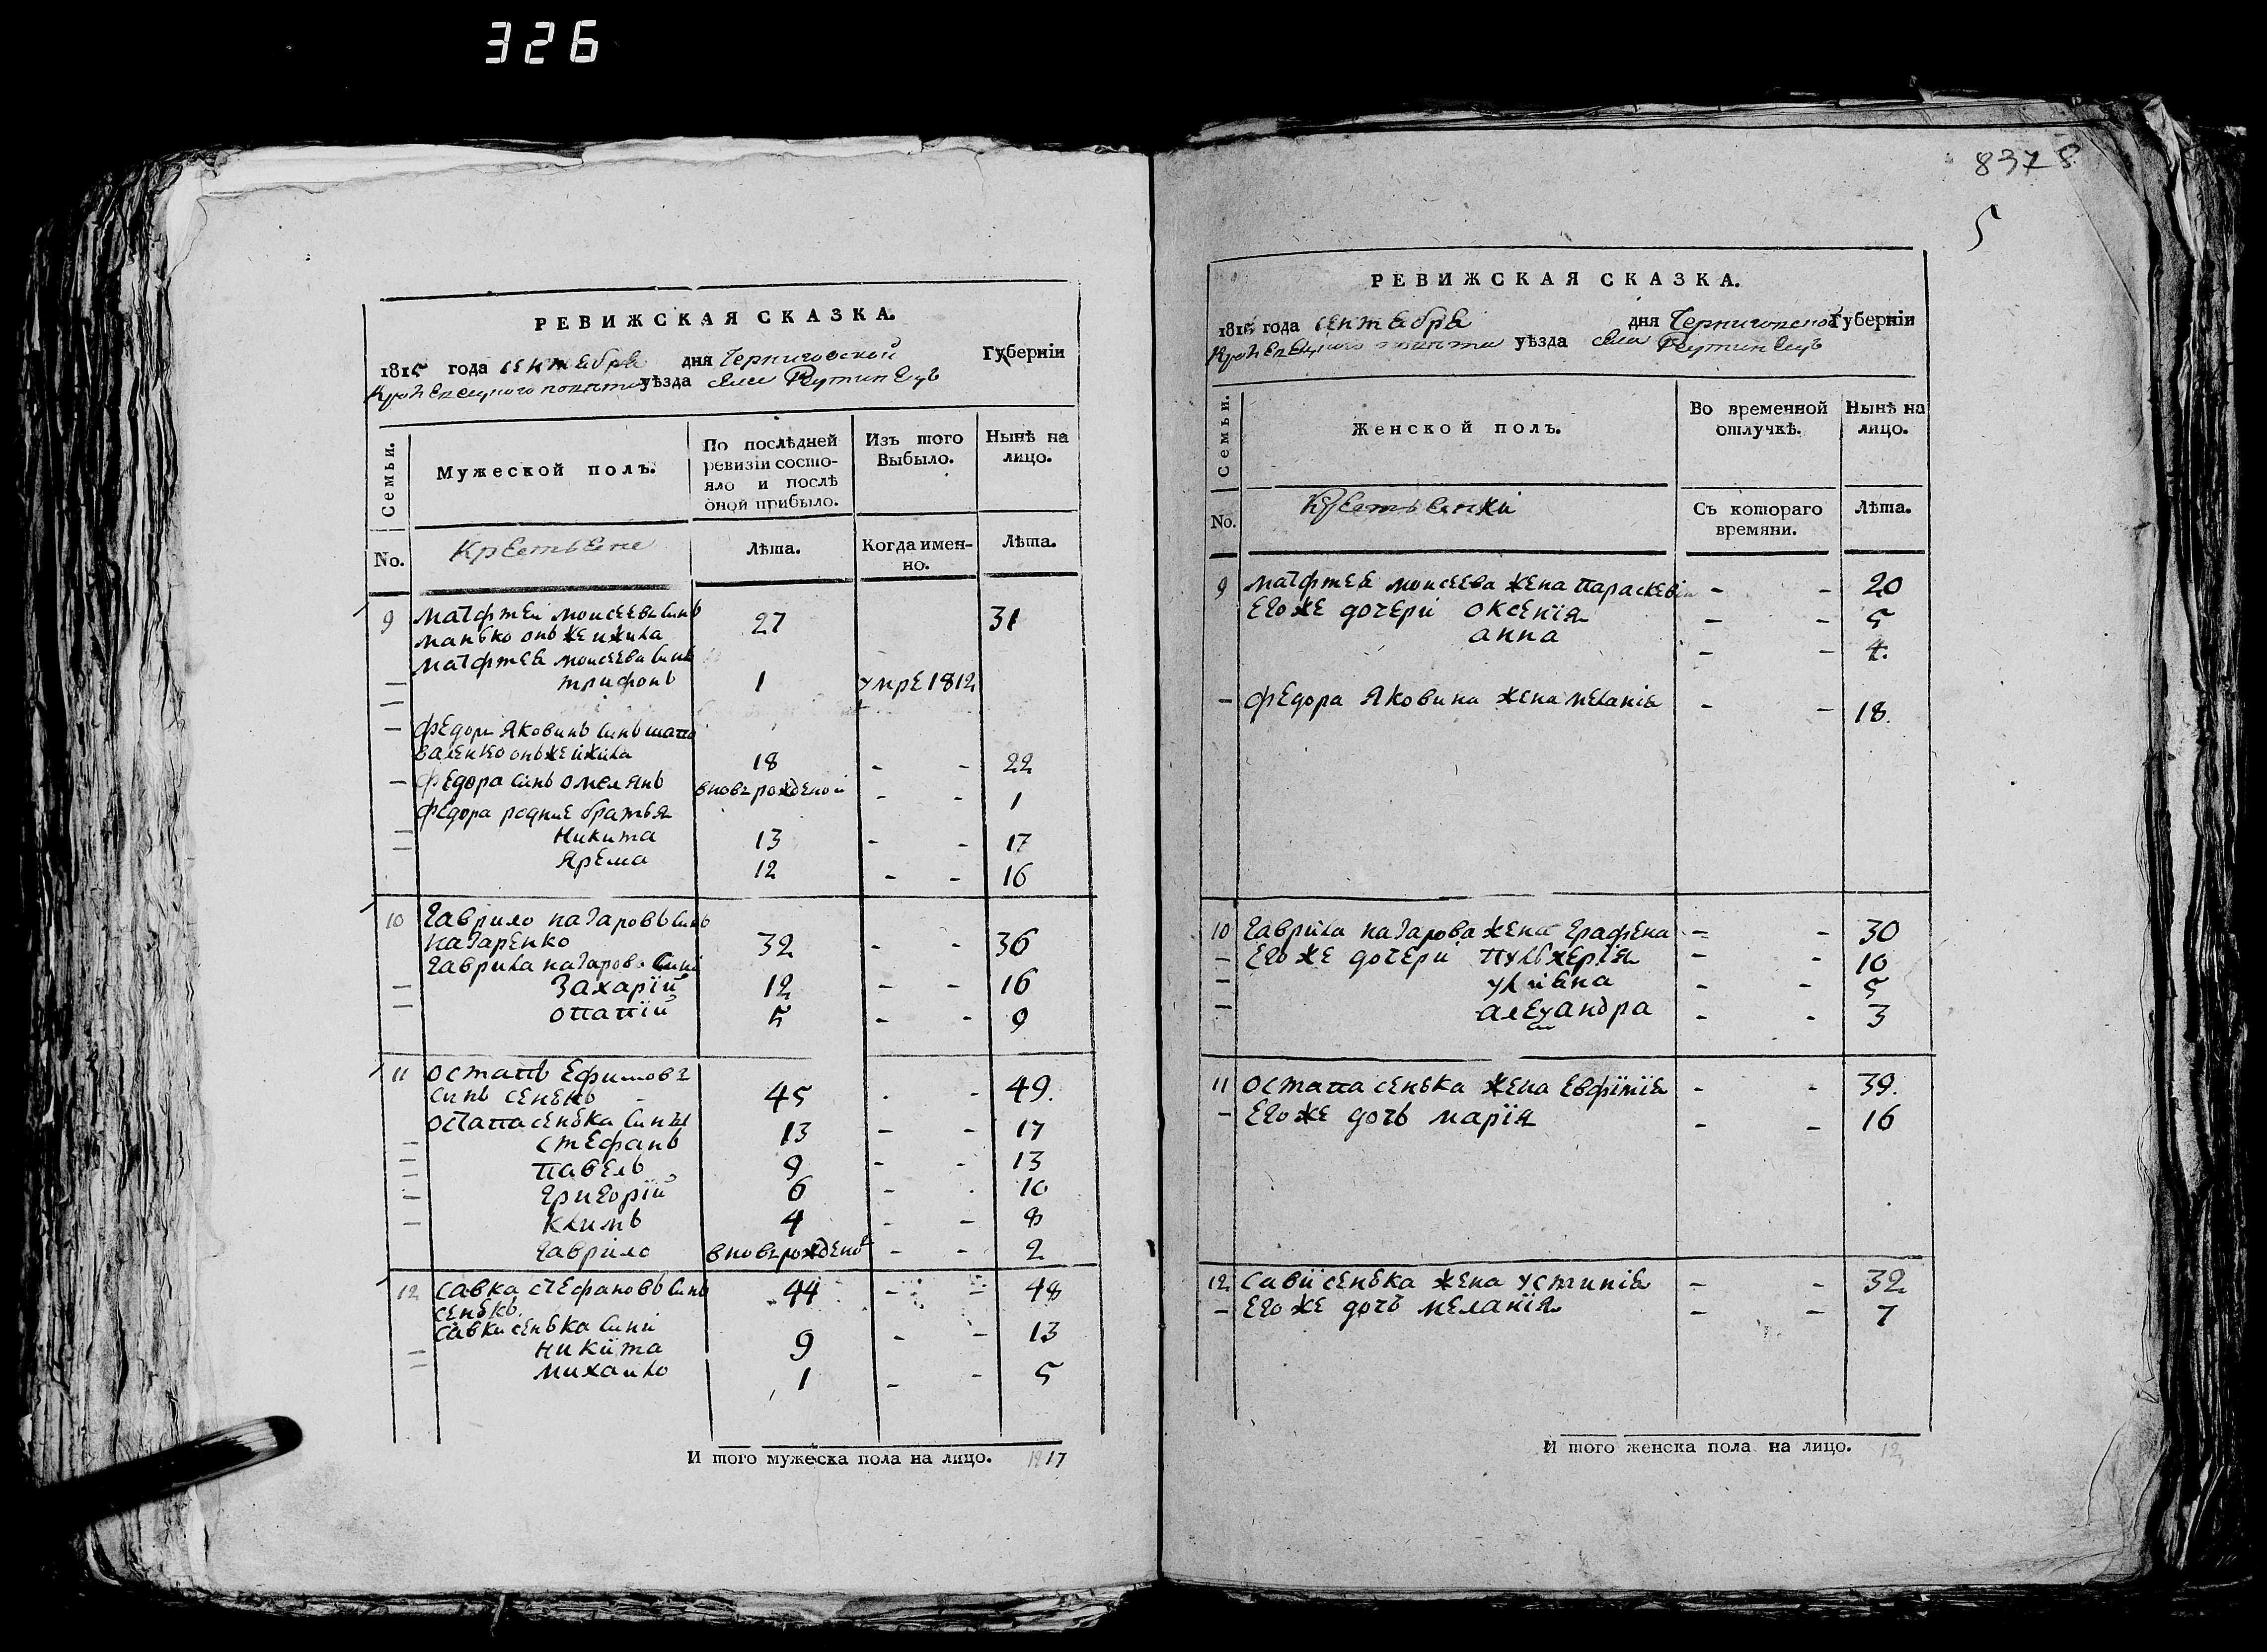 326
РЕВИЖСКАЯ СКАЗКА.
1815 года сентября дня Черниговской Губерніи
Кролевецкого повета уѣзда села Реутинецъ
Семьи.
Мужеской полъ.
По послѣдней ревизіи состо-
яло и послѣ
оной прибыло.
Изъ того
Выбыло.
Нынѣ на
лицо.
No.
Крестьяне
Лѣта.
Когда имен-
но.
Лѣта.
9 Матфтей моисеевъ синъ
манько онъ же и жила 27 31
Матфтея моисеева синъ
трифонъ 1 умре 1812
федоръ Яковинъ синъ шапо
валенко онъ же и жила 18 - - 22
федора синъ омелянъ вновърожденой - - 1
федора родние братья
Никита 13 - - 17
Ярема 12 - - 16
10 Гаврило назаровъ синъ
назаренко 32 - - 36
Гаврила назарова сини
Захарій 12 - - 16
опапій 5 - - 9
11 остапъ Ефимовъ
синъ сенько 45 - - 49.
остапа сенька сины
стефанъ 13 - - 17
павелъ 9 - - 13
григорій 6 - - 10
климъ 4 - - 8
гаврило вновърожденой - - 2
12 савка стефановъ синъ 44 - - 48
сенько.
савки сенька сини
никита 9 - - 13
михаило 1 - - 5
И того мужеска пола на лицо. 17
837
5
РЕВИЖСКАЯ СКАЗКА.
1815 года сентября дня Черниговской Губерніи
Кролевецкого повета уѣзда села Реутинецъ
Семьи.
Женской полъ.
Во временной
отлучкѣ.
Нынѣ на
лицо.
No.
Крестьянкі
Съ котораго
времяни.
Лѣта.
9 матфтея моисеева жена параскевія - - 20
Его же дочери оксенія - - 5
анна - - 4.
- федора Яковина жена меланія - - 18.
10 Гаврила назарова жена Ерафена - - 30
Его же дочери пульхерія - - 10
улияна - - 5
алехандра - - 3
11 остапа сенька жена Евфимія - - 39.
- Его же дочь марія - - 16
12 савы сенька жена устинія - - 32
- Его же дочь меланія - - 7
И того женска пола на лицо. 12